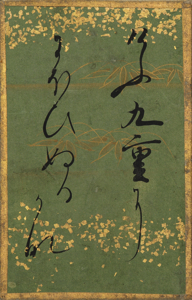 けふ九重に
にほひぬる
かな